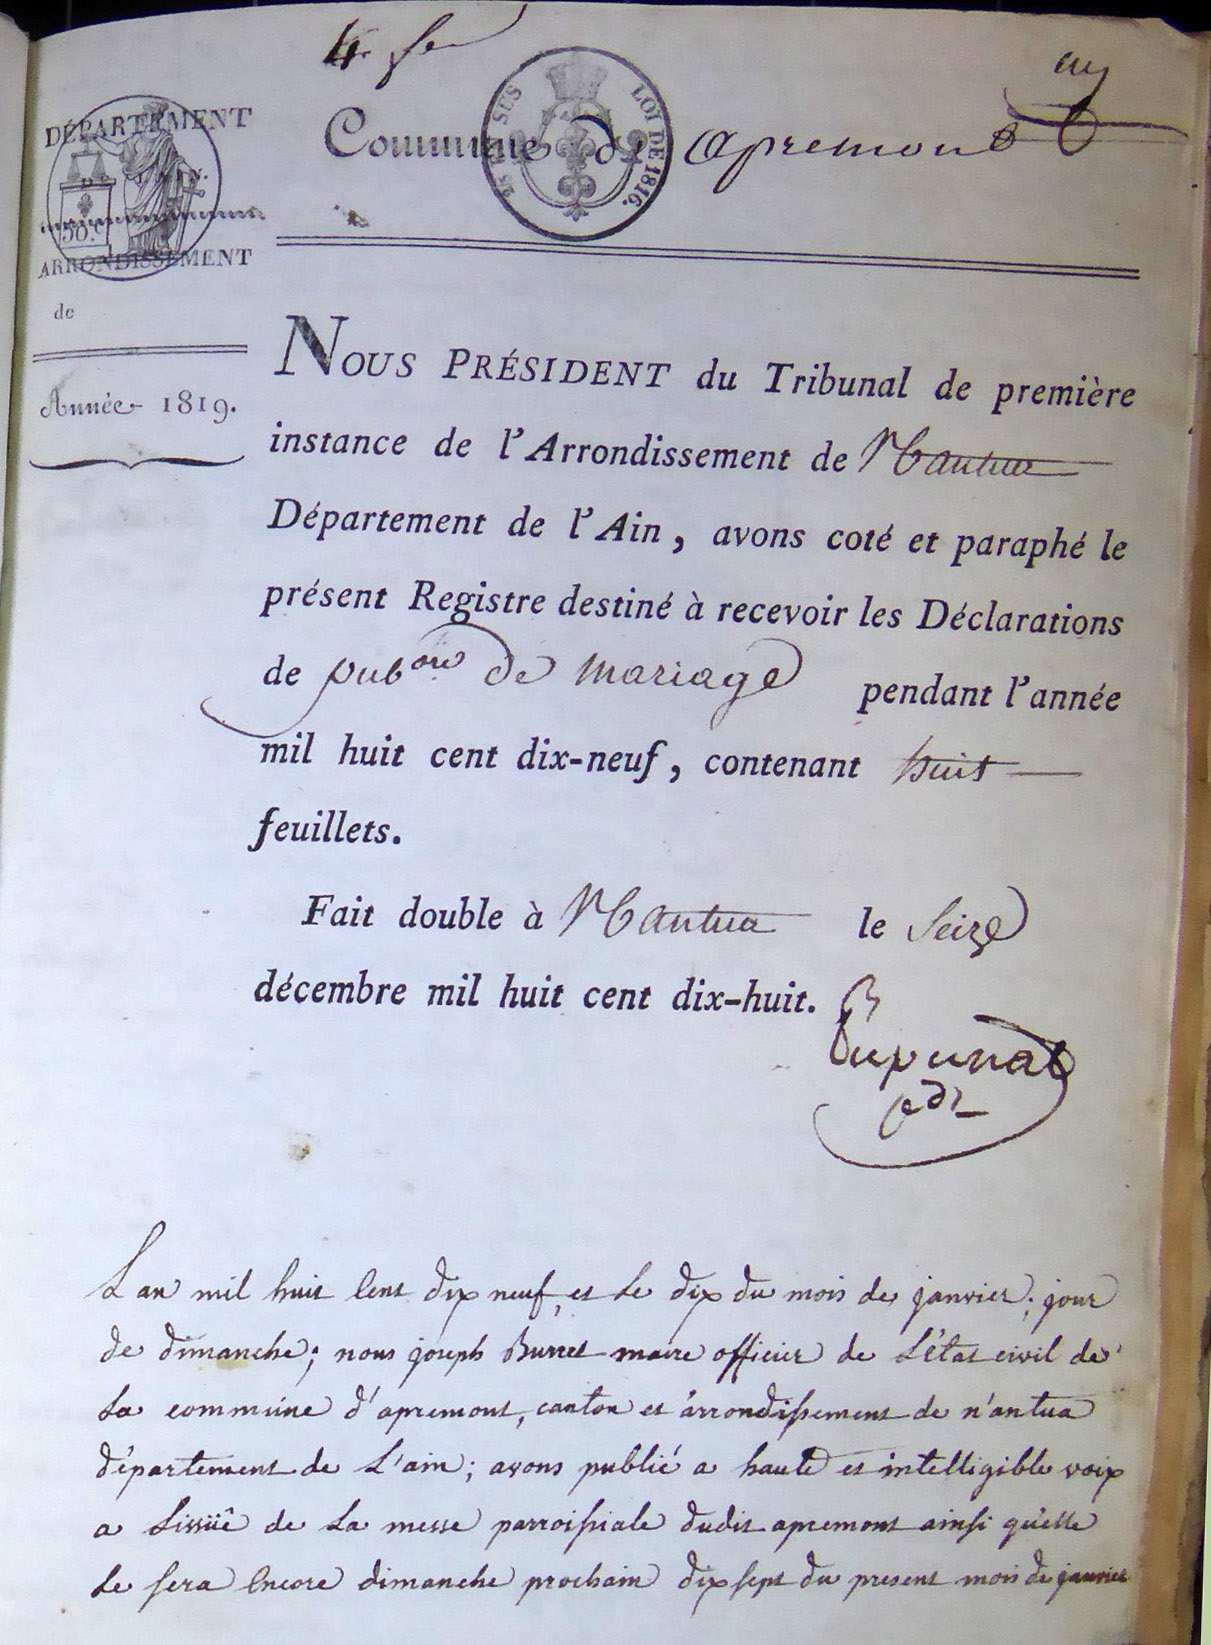 4 fe
DÉPARTEMENT
DE L'AIN.
50.c
ARRONDISSEMENT
de
Année 1819.
25 EN SUS
LOI DE 1816.
Commune de apremont
NOUS PRÉSIDENT du Tribunal de première
instance de l'Arrondissement de Nantua
Département de l'Ain, avons coté et paraphé le
présent Registre destiné à recevoir les Déclarations
de pub.on de mariage pendant l'année
mil huit cent dix-neuf, contenant huit
feuillets.
Fait double à Nantua le Seize
décembre mil huit cent dix-huit.
L'an mil huit Cent dix neuf, et le dix du mois de janvier; jour
de dimanche; nous joseph Burret maire officier de L'état civil de
La commune d'apremont, canton et arrondissement de n'antua
département de L'ain; avons publié a haute et intelligible voix
a Lissüe de La messe parroissiale dudit apremont ainsi quelle
Le sera Encore dimanche prochain dix sept du present mois de janvier